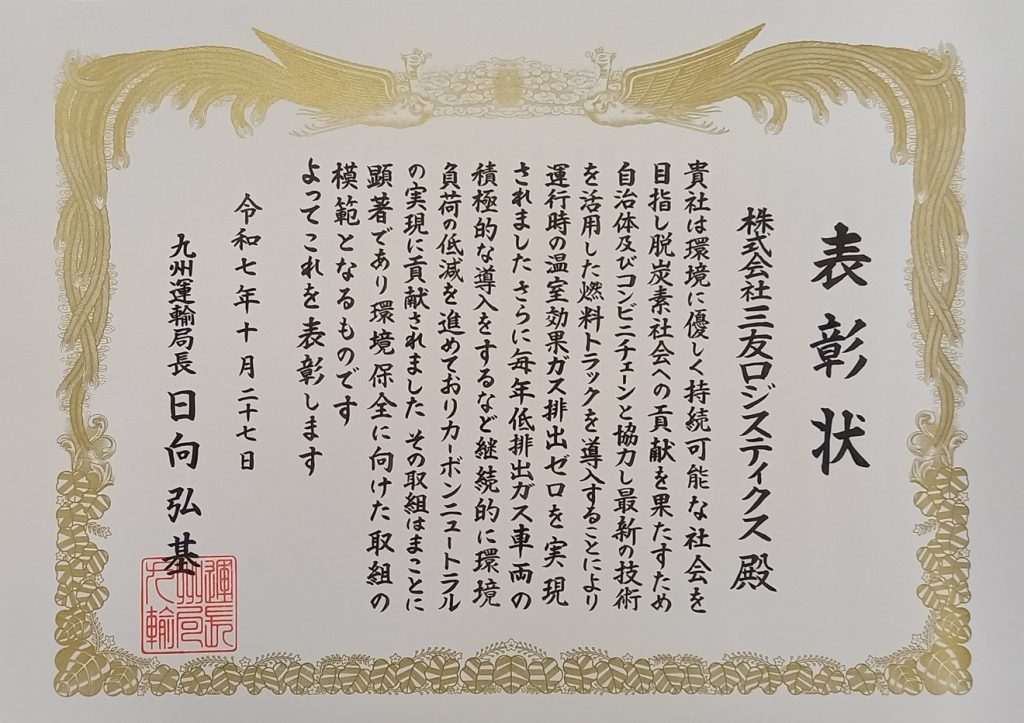 表彰状
株式会社三友ロジスティクス 殿
貴社は環境に優しく持続可能な社会を
目指し脱炭素社会への貢献を果たすため
自治体及びコンビニチェーンと協力し最新の技術
を活用した燃料トラックを導入することにより
運行時の温室効果ガス排出ゼロを実現
されました さらに毎年低排出ガス車両の
積極的な導入をするなど継続的に環境
負荷の低減を進めておりカーボンニュートラル
の実現に貢献されました その取組はまことに
顕著であり環境保全に向けた取組の
模範となるものです
よってこれを表彰します
令和七年十月二十七日
九州運輸局長 日向弘基